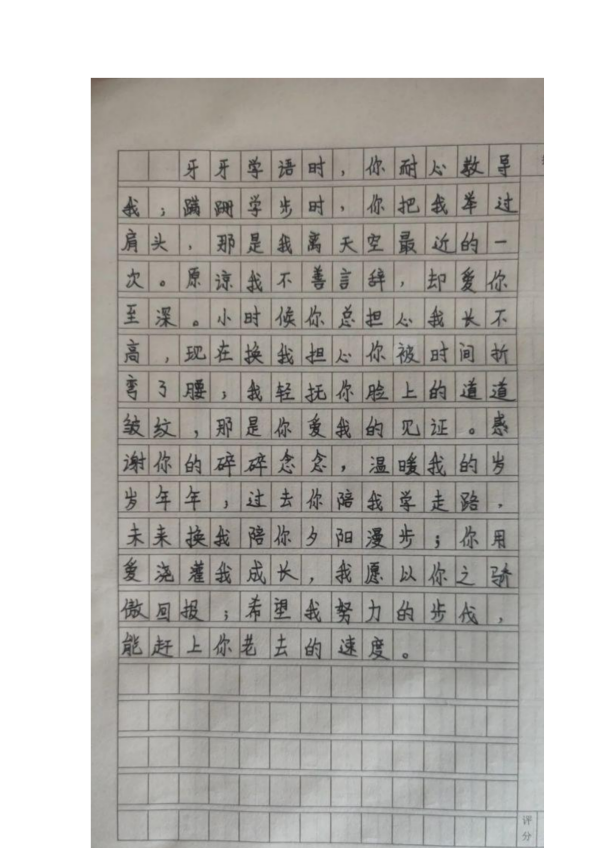 牙牙学语时，你耐心教导
我；蹒跚学步时，你把我举过
肩头，那是我离天空最近的一
次。原谅我不善言辞，却爱你
至深。小时候你总担心我长不
高，现在换我担心你被时间折
弯了腰；我轻抚你脸上的道道
皱纹，那是你爱我的见证。感
谢你的碎碎念念，温暖我的岁
岁年年；过去你陪我学走路，
未来换我陪你夕阳漫步；你用
爱浇灌我成长，我愿以你之骄
傲回报；希望我努力的步伐，
能赶上你老去的速度。
评
分